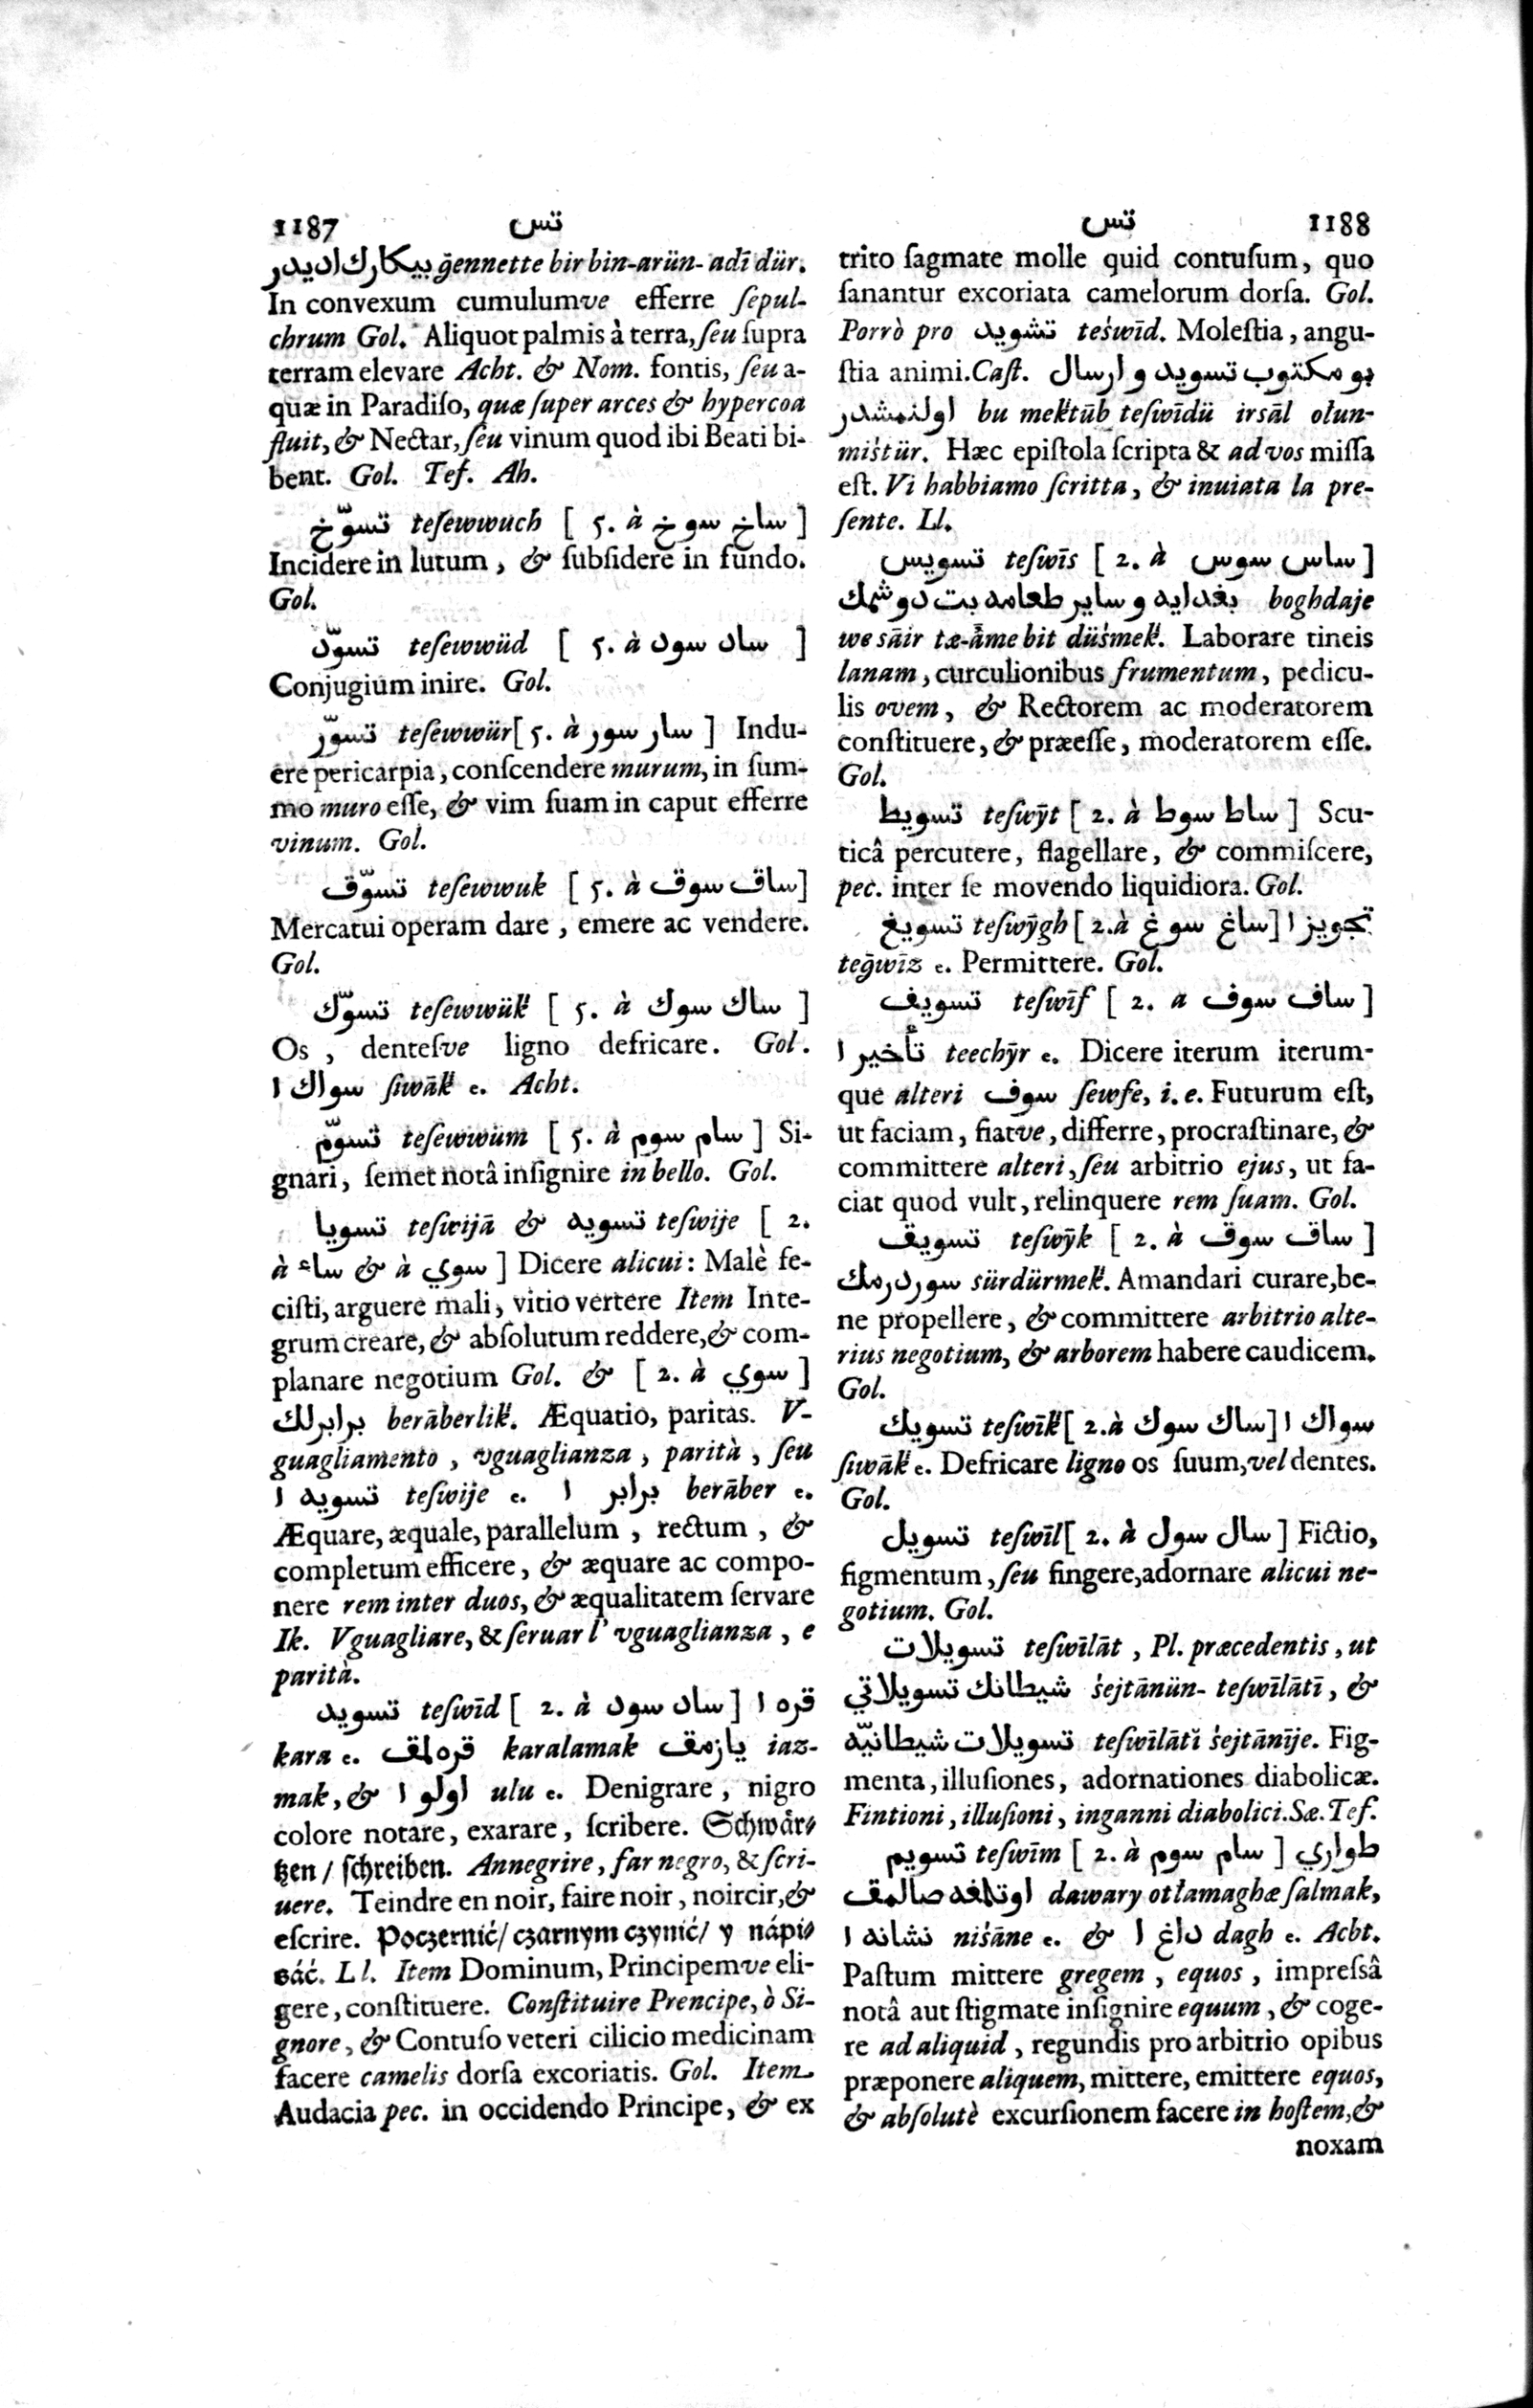 1187 تس
بيكارك اديدر ḡennette bir bin-arün- adī dür.
In convexum cumulumve efferre ſepul-
chrum Gol. Aliquot palmis à terra, ſeu ſupra
terram elevare Acht. & Nom. fontis, ſeu a-
quæ in Paradiſo, quæ ſuper arces & hypercoa
fluit, & Nectar, ſeu vinum quod ibi Beati bi-
bent. Gol. Tef. Ah.
تسوّخ teſewwuch [ 5. à ساخ سوخ ]
Incidere in lutum, & ſubſidere in fundo.
Gol.
تسوّد teſewwüd [ 5. à ساد سود ]
Conjugium inire. Gol.
تسوّر teſewwür [ 5. à سار سور ] Indu-
ere pericarpia, conſcendere murum, in ſum-
mo muro eſſe, & vim ſuam in caput efferre
vinum. Gol.
تسوّق teſewwuk [ 5. à ساق سوق ]
Mercatui operam dare, emere ac vendere.
Gol.
تسوّك teſewwük̈ [ 5. à ساك سوك ]
Os, denteſve ligno defricare. Gol.
سواك ا ſiwāk̈ e. Acht.
تسوّم teſewwüm [ 5. à سام سوم ] Si-
gnari, ſemet notâ inſignire in bello. Gol.
تسويا teſwijā & تسويه teſwije [ 2.
à ساء & à سوي ] Dicere alicui: Malè fe-
ciſti, arguere mali, vitio vertere Item Inte-
grum creare, & abſolutum reddere, & com-
planare negotium Gol. & [ 2. à سوي ]
برابرلك berāberlik̈. Æquatio, paritas. V-
guagliamento, vguaglianza, parità, ſeu
تسويه ا teſwije e. برابر ا berāber e.
Æquare, æquale, parallelum, rectum, &
completum efficere, & æquare ac compo-
nere rem inter duos, & æqualitatem ſervare
Ik. Vguagliare, & ſeruar l' vguaglianza, e
parità.
تسويد teſwīd [ 2. à ساد سود ] قره ا
kara e. قره لمق karalamak يازمق iaz-
mak, & اولو ا ulu e. Denigrare, nigro
colore notare, exarare, ſcribere. Schwår⸗
tzen / ſchreiben. Annegrire, far negro, & ſcri-
uere. Teindre en noir, faire noir, noircir, &
eſcrire. Poczernić/ czarnym czynić/ y nápi⸗
sáć. Ll. Item Dominum, Principemve eli-
gere, conſtituere. Conſtituire Prencipe, ò Si-
gnore, & Contuſo veteri cilicio medicinam
facere camelis dorſa excoriatis. Gol. Item
Audacia pec. in occidendo Principe, & ex
تس 1188
trito ſagmate molle quid contuſum, quo
ſanantur excoriata camelorum dorſa. Gol.
Porrò pro تشويد teśwīd. Moleſtia, angu-
ſtia animi. Caſt. بو مكتوب تسويد و ارسال
اولنمشدر bu mek̈tūb teſwīdü irsāl olun-
miśtür. Hæc epiſtola ſcripta & ad vos miſſa
eſt. Vi habbiamo ſcritta, & inuiata la pre-
ſente. Ll.
تسويس teſwīs [ 2. à ساس سوس ]
بغدايه و ساير طعامه بت دوشمك boghdaje
we sāir tæ-āme bit düśmek̈. Laborare tineis
lanam, curculionibus frumentum, pedicu-
lis ovem, & Rectorem ac moderatorem
conſtituere, & præeſſe, moderatorem eſſe.
Gol.
تسويط teſwȳt [ 2. à ساط سوط ] Scu-
ticâ percutere, flagellare, & commiſcere,
pec. inter ſe movendo liquidiora. Gol.
تسويغ teſwȳgh [ 2. à ساغ سوغ ] تجويز ا
teḡwīz e. Permittere. Gol.
تسويف teſwīf [ 2. a ساف سوف ]
تأخير ا teechȳr e. Dicere iterum iterum-
que alteri سوف ſewfe, i. e. Futurum eſt,
ut faciam, fiatve, differre, procraſtinare, &
committere alteri, ſeu arbitrio ejus, ut fa-
ciat quod vult, relinquere rem ſuam. Gol.
تسويق teſwȳk [ 2. à ساق سوق ]
سوردرمك sürdürmek̈. Amandari curare, be-
ne propellere, & committere arbitrio alte-
rius negotium, & arborem habere caudicem.
Gol.
تسويك teſwīk̈ [ 2. à ساك سوك ] سواك ا
ſiwāk̈ e. Defricare ligno os ſuum, vel dentes.
Gol.
تسويل teſwīl [ 2. à سال سول ] Fictio,
figmentum, ſeu fingere, adornare alicui ne-
gotium. Gol.
تسويلات teſwīlāt, Pl. præcedentis, ut
شيطانك تسويلاتي śejtānün- teſwīlātī, &
تسويلات شيطانيّه teſwīlātĭ śejtānīje. Fig-
menta, illuſiones, adornationes diabolicæ.
Fintioni, illuſioni, inganni diabolici. Sæ. Tef.
تسويم teſwīm [ 2. à سام سوم ] طواري
اوتلامغه صالمق dawary otlamaghæ ſalmak,
نشانه ا niśāne e. & داغ ا dagh e. Acht.
Paſtum mittere gregem, equos, impreſsâ
notâ aut ſtigmate inſignire equum, & coge-
re ad aliquid, regundis pro arbitrio opibus
præponere aliquem, mittere, emittere equos,
& abſolutè excurſionem facere in hoſtem, &
noxam